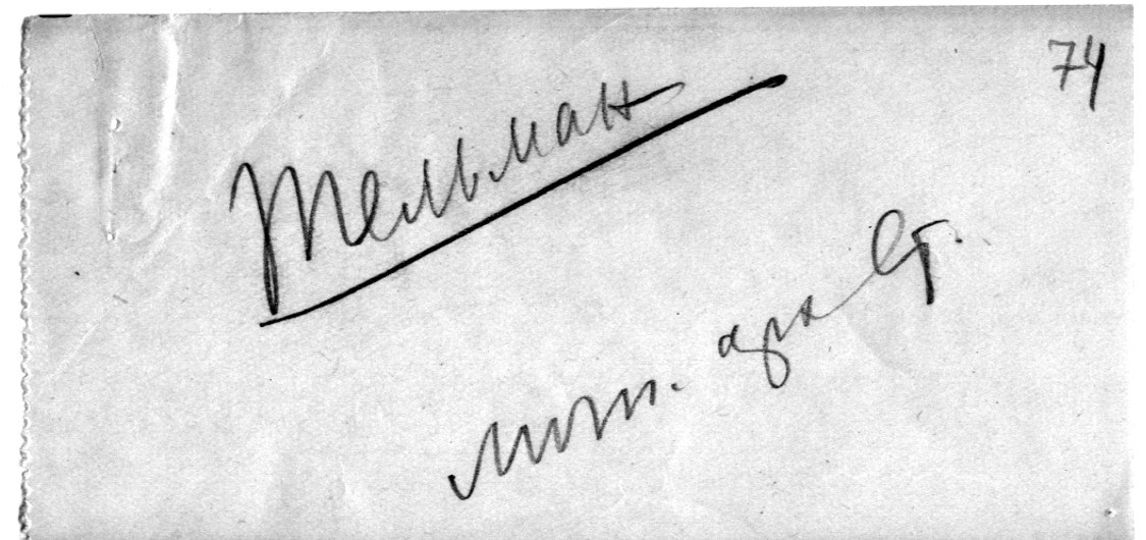 74
Тельман
лит. арх Ст.